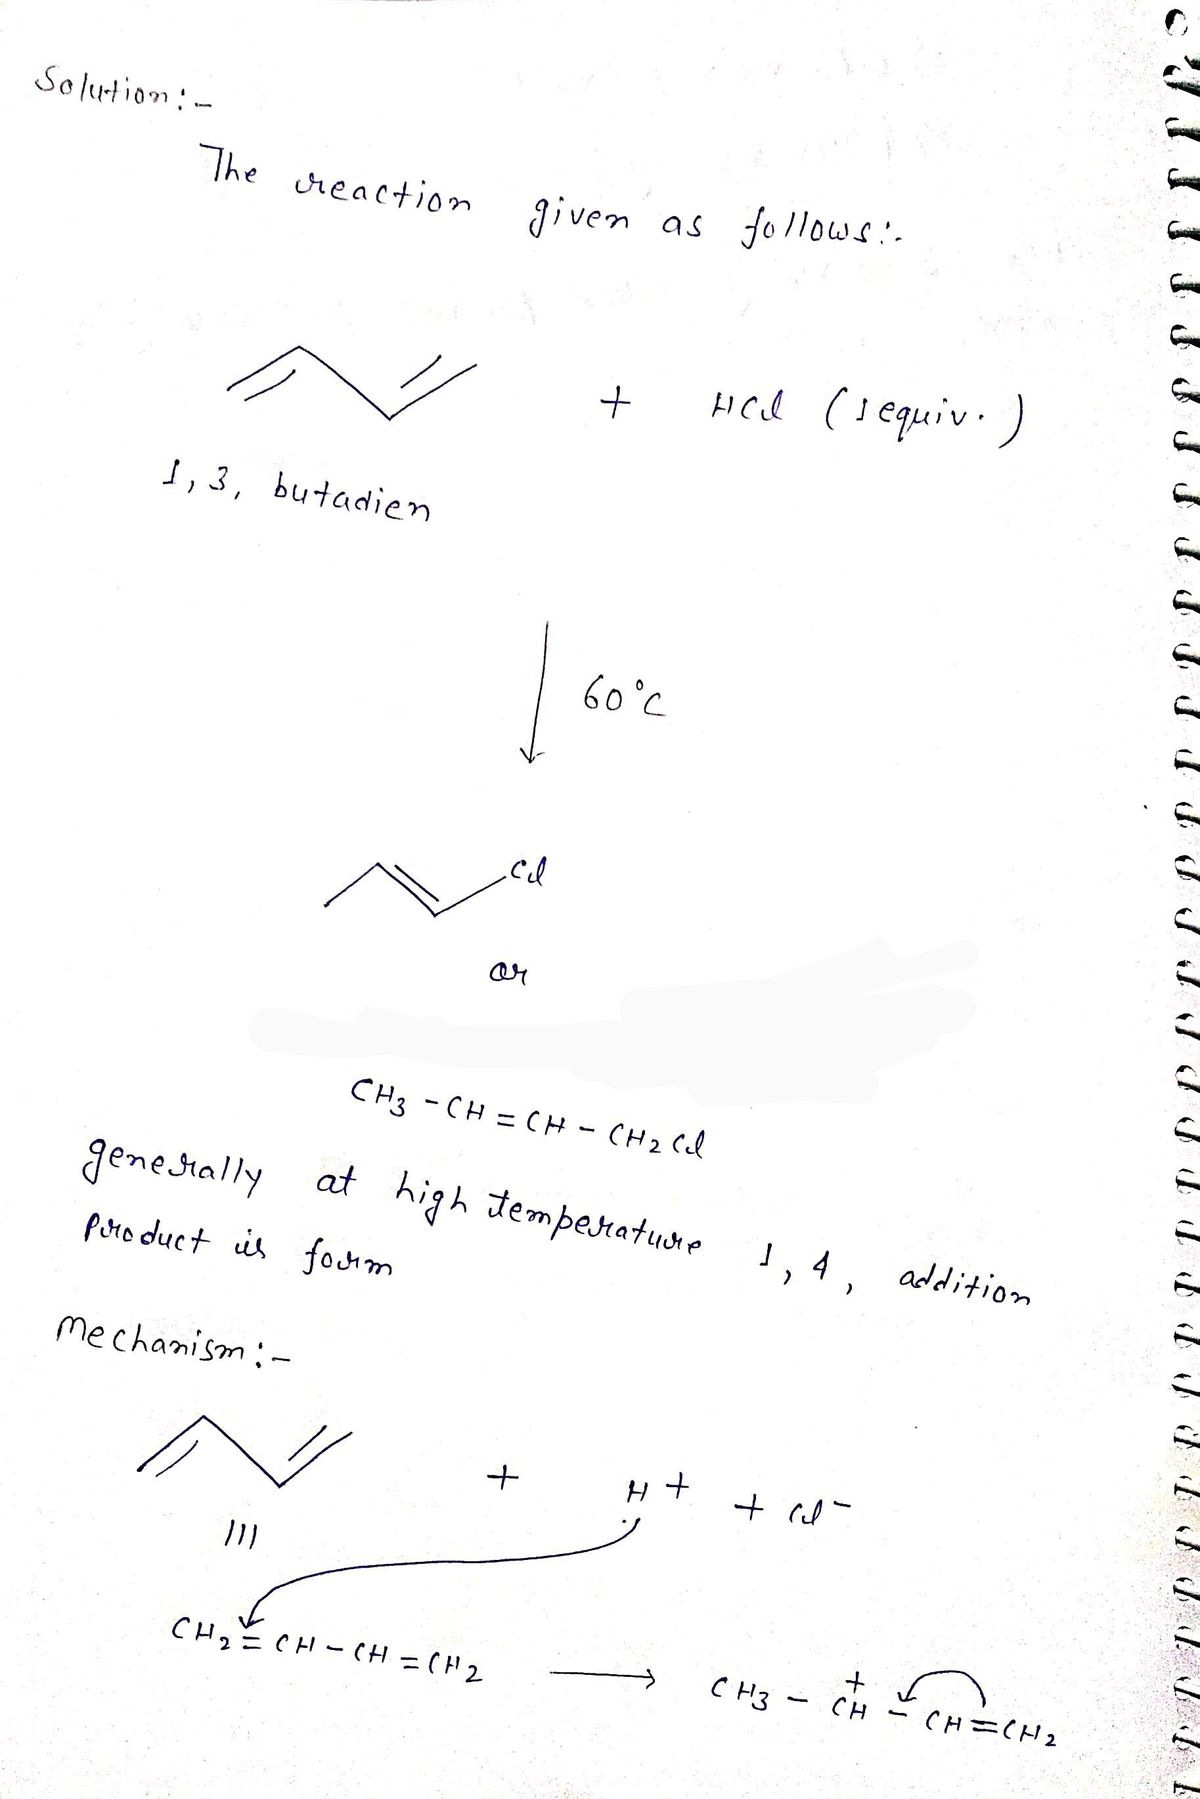 Solution:-
The reaction given as follows:-
+ HCl (1equiv.)
1,3, butadien
60°C
Cl
or
CH3 - CH = CH - CH2 Cl
generally at high temperature 1,4, addition
Product is form
Mechanism:-
+ H+ + Cl-
CH2 = CH - CH = CH2 → CH3 - CH+ - CH = CH2